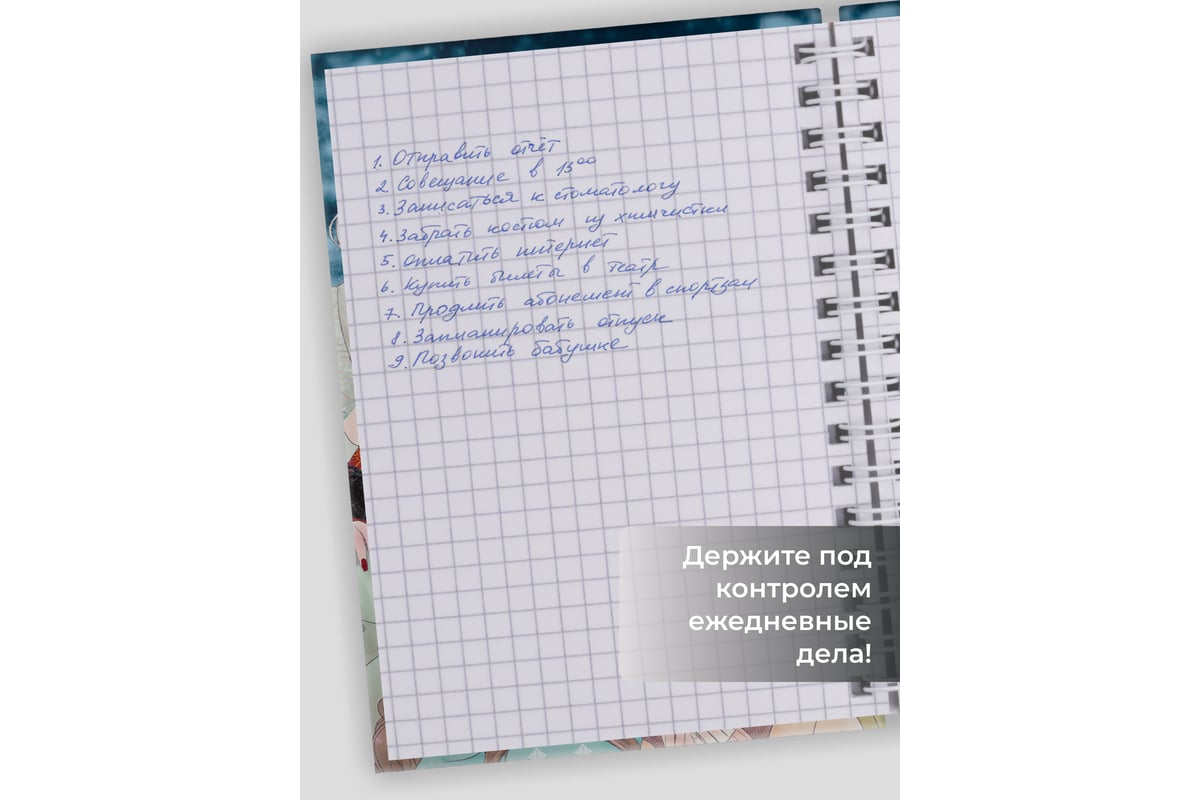 1. Отправить отчёт
2. Совещание в 15⁰⁰
3. Записаться к стоматологу
4. Забрать костюм из химчистки
5. Оплатить интернет
6. Купить билеты в театр
7. Продлить абонемент в спортзал
8. Запланировать отпуск
9. Позвонить бабушке
Держите под
контролем
ежедневные
дела!